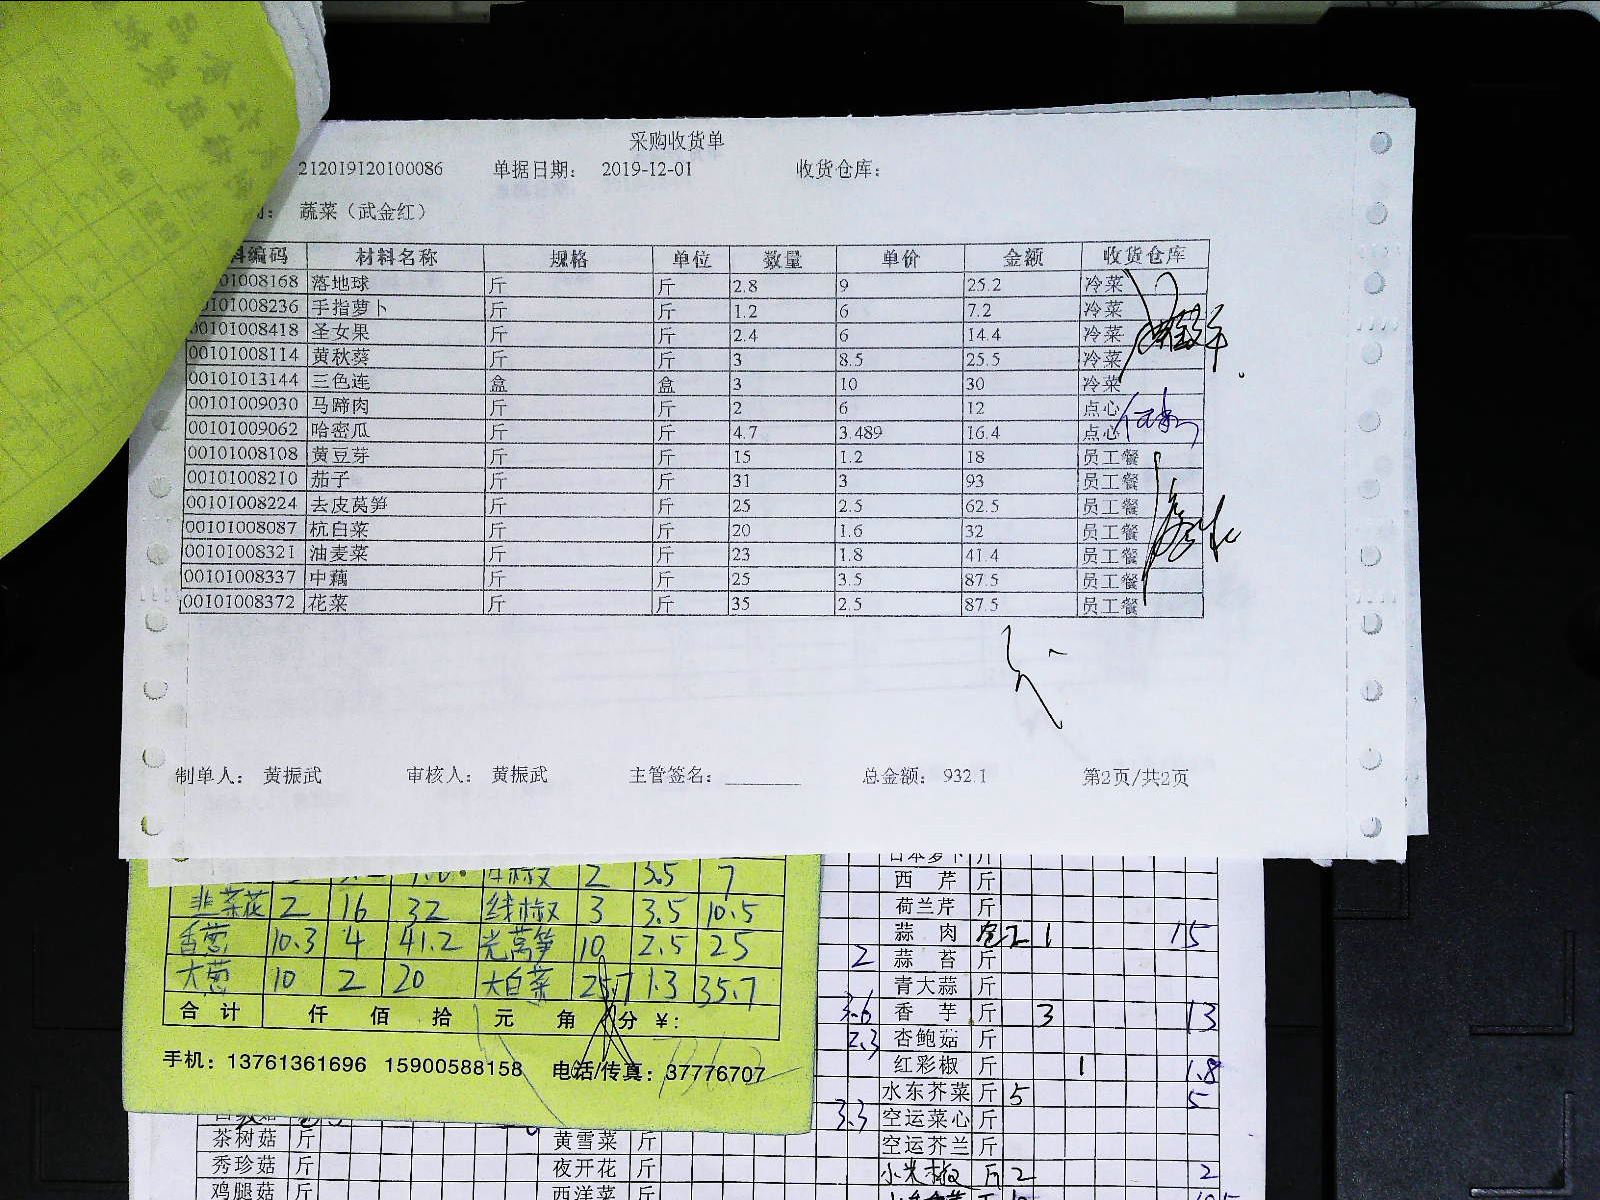 采购收货单
212019120100086 单据日期: 2019-12-01 收货仓库:
蔬菜（武金红）
料编码 材料名称 规格 单位 数量 单价 金额 收货仓库
01008168 落地球 斤 斤 2.8 9 25.2 冷菜
00101008236 手指萝卜 斤 斤 1.2 6 7.2 冷菜
00101008418 圣女果 斤 斤 2.4 6 14.4 冷菜
00101008114 黄秋葵 斤 斤 3 8.5 25.5 冷菜
00101013144 三色连 盒 盒 3 10 30 冷菜
00101009030 马蹄肉 斤 斤 2 6 12 点心
00101009062 哈密瓜 斤 斤 4.7 3.489 16.4 点心
00101008108 黄豆芽 斤 斤 15 1.2 18 员工餐
00101008210 茄子 斤 斤 31 3 93 员工餐
00101008224 去皮莴笋 斤 斤 25 2.5 62.5 员工餐
00101008087 杭白菜 斤 斤 20 1.6 32 员工餐
00101008321 油麦菜 斤 斤 23 1.8 41.4 员工餐
00101008337 中藕 斤 斤 25 3.5 87.5 员工餐
00101008372 花菜 斤 斤 35 2.5 87.5 员工餐
制单人: 黄振武 审核人: 黄振武 主管签名: 总金额: 932.1 第2页/共2页
2 3.5 7
韭菜花 2 16 32 线椒 3 3.5 10.5
香葱 10.3 4 41.2 光莴笋 10 2.5 25
大葱 10 2 20 大白菜 25.7 1.3 35.7
合计 仟 佰 拾 元 角 分 ¥:
手机: 13761361696 15900588158 电话/传真: 37776707
日本萝卜 斤
西芹 斤
荷兰芹 斤
蒜肉 1 15
2 蒜苔 斤
青大蒜 斤
3.6 香芋 斤 3 13
2.3 杏鲍菇 斤
红彩椒 斤 1 1.8
水东芥菜 斤 5 5
3.3 空运菜心 斤
空运芥兰 斤
小米椒 斤 2 2
茶树菇 斤 黄雪菜 斤
秀珍菇 斤 夜开花 斤
鸡腿菇 斤 西洋菜 斤